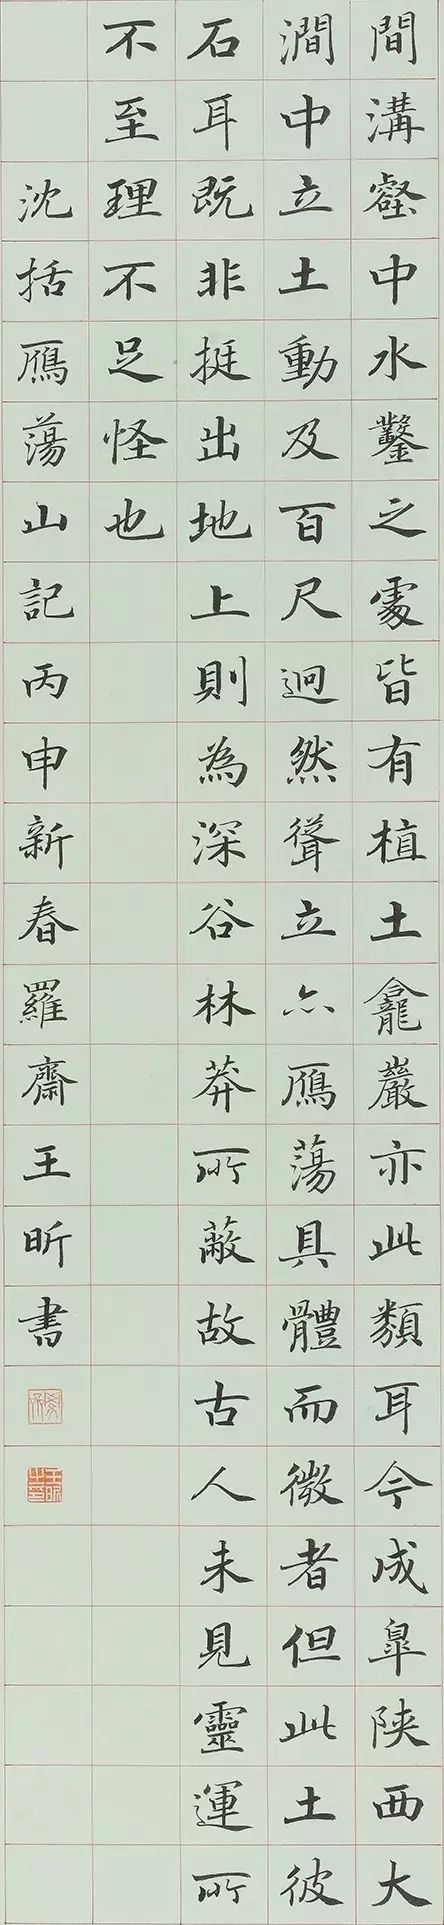 間溝壑中水鑿之處皆有植土龕巖亦此類耳今成皐陝西大
澗中立土動及百尺迥然聳立亦雁蕩具體而微者但此土彼
石耳既非挺出地上則為深谷林莽所蔽故古人未見靈運所
不至理不足怪也
沈括鴈蕩山記丙申新春羅齋王昕書